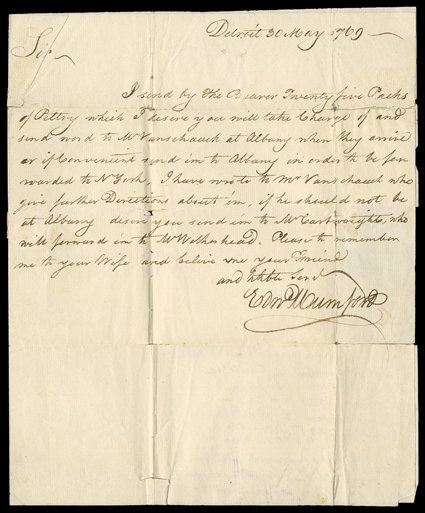 Detroit 30 May 1769
Sir
I send by the Bearer Twenty five Packs
of Peltry which I desire you will take Charge of and
send word to Mr Vanschaack at Albany when they arrive
or if Convenient send im to Albany in order to be for
warded to N York. I have wrote to Mr Vanschaack who
give further Directions about im, if he should not be
at Albany desire you send im to Mr Cartwrights, who
will forward im to Mr Wetherhead. Please to remember
me to your Wife and belive me your Friend
and Hble Servt
Edwd Mumford